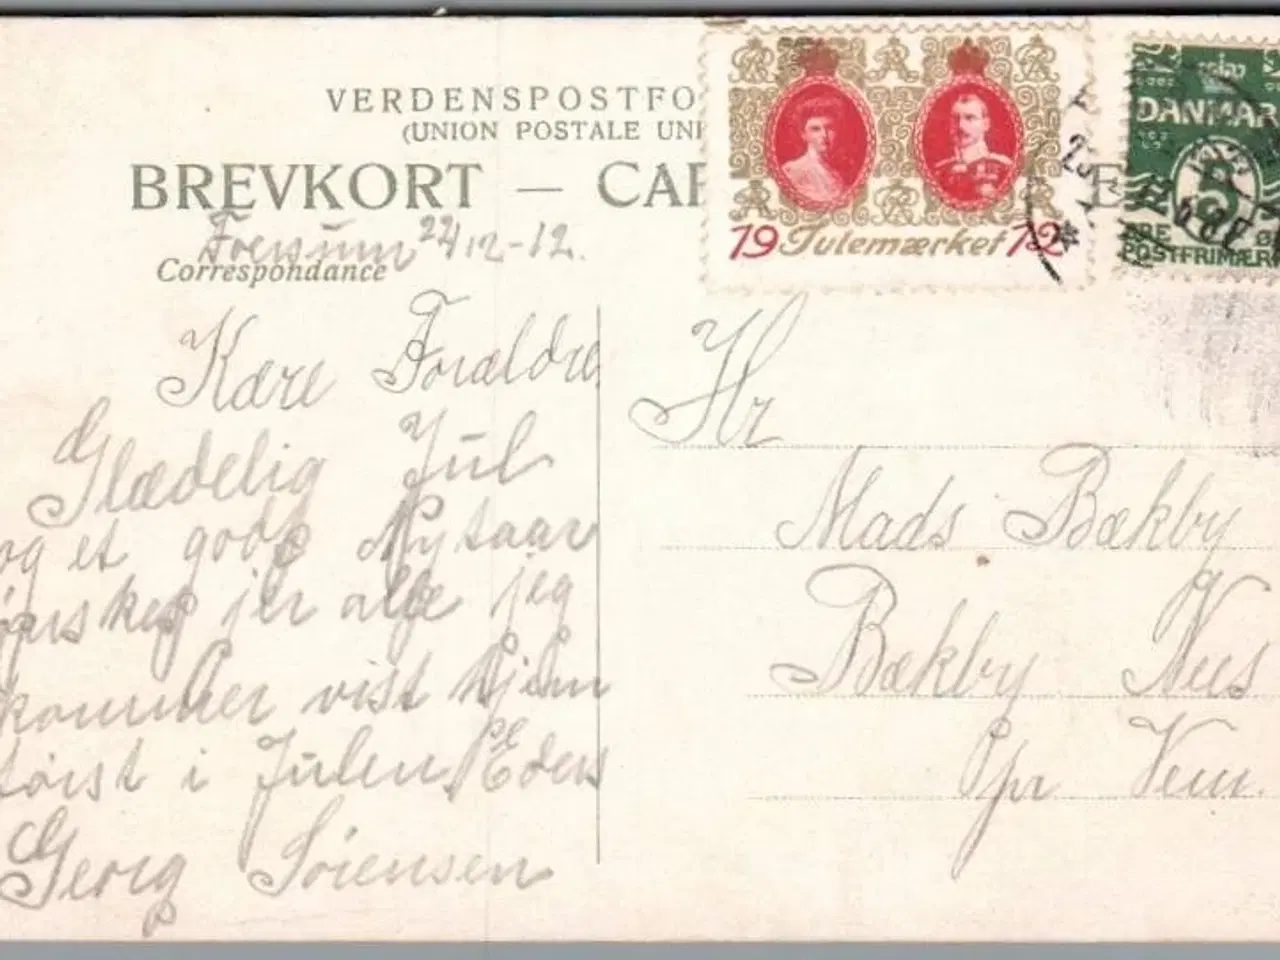 VERDENSPOSTFO
(UNION POSTALE UNI
BREVKORT — CAR
19 Julemærket 12
DANMAR
5
POSTFRIMÆRK
Foersum 22/12-12.
Correspondance
Kære Forældre
Glædelig Jul
og et godt Nytaar
ønskes jer alle jeg
kommer vist hjem
først i Julen, Eders
Georg Sørensen
Hr
Mads Bækby
Bækby Nus
Vem.